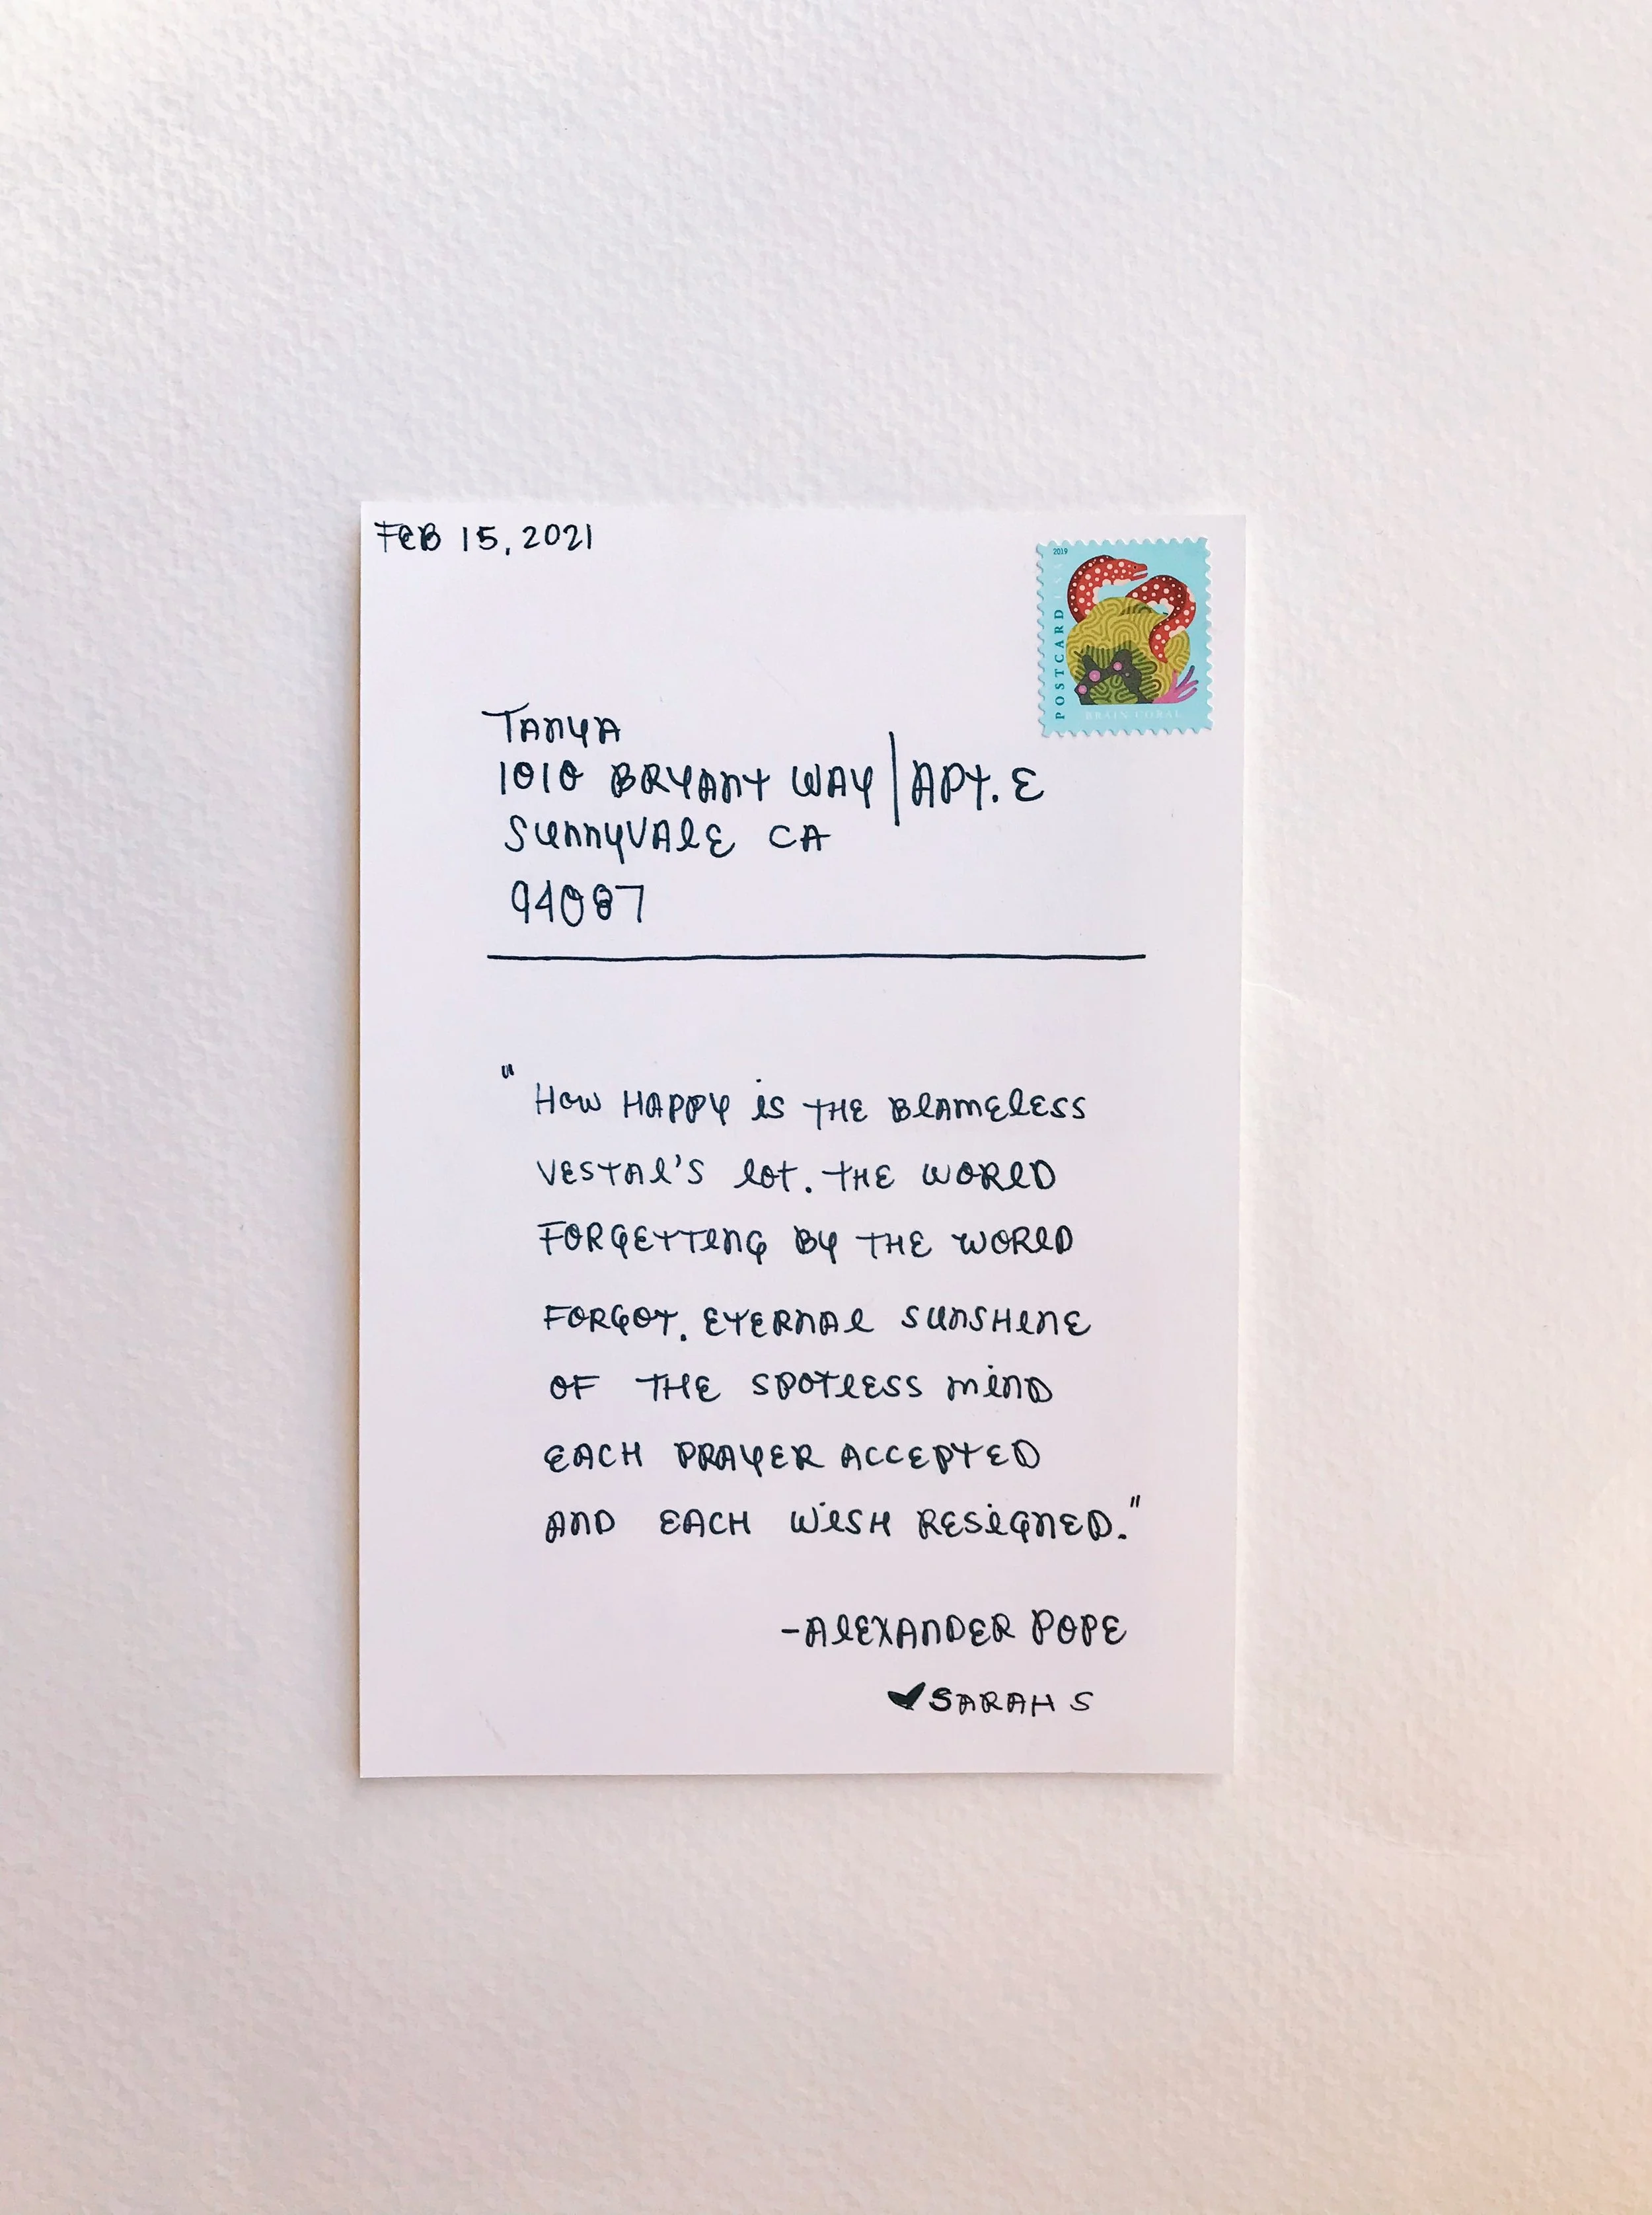 FEB 15, 2021
2019
POSTCARD USA
BRAIN CORAL
TANYA
1010 BRYANT WAY | APT. E
SUNNYVALE CA
94087
"HOW HAPPY IS THE BLAMELESS
VESTAL'S LOT. THE WORLD
FORGETTING BY THE WORLD
FORGOT. ETERNAL SUNSHINE
OF THE SPOTLESS MIND
EACH PRAYER ACCEPTED
AND EACH WISH RESIGNED."
-ALEXANDER POPE
SARAH S